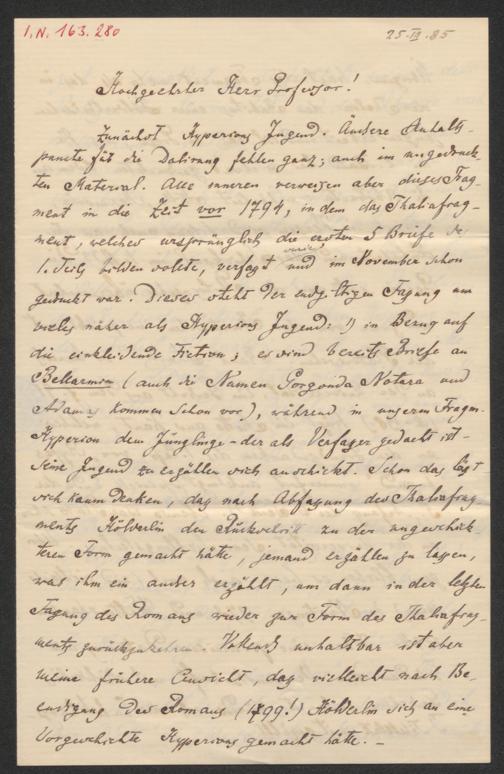 I.N. 163.280
25.III.85
Hochgeehrter Herr Professor!
Zunächst Hyperions Jugend. Äussere Anhalts-
puncte für die Datirung fehlen ganz; auch im ungedruck-
ten Material. Alle inneren verweisen aber dieses Frag-
ment in die Zeit vor 1794, in dem das Thaliafrag-
ment, welches ursprünglich die ersten 5 Briefe des
1. Teils bilden wollte, verfaßt und im November schon
gedruckt war. Dieses steht der endgiltigen Faßung um
vieles näher als Hyperions Jugend: 1) in Bezug auf
die einkleidende Fiction; es sind bereits Briefe an
Bellarmin (auch die Namen Gorgonda Notara und
Adamas kommen schon vor), während in unserem Fragm.
Hyperion dem Jünglinge - der als Verfaßer gedacht ist -
seine Jugend zu erzählen sich anschickt. Schon das läßt
sich kaum denken, daß nach Abfaßung des Thaliafrag-
ments Hölderlin den Rückschritt zu der ungeschick-
teren Form gemacht hätte, jemand erzählen zu laßen,
was ihm ein andrer erzählt, um dann in der letzten
Faßung des Romans wieder zur Form des Thaliafrag-
ments zurückzukehren. Vollends unhaltbar ist aber
meine frühere Ansicht, daß vielleicht nach Be-
endigung des Romans (1799!) Hölderlin sich an eine
Vorgeschichte Hyperions gemacht hätte. -